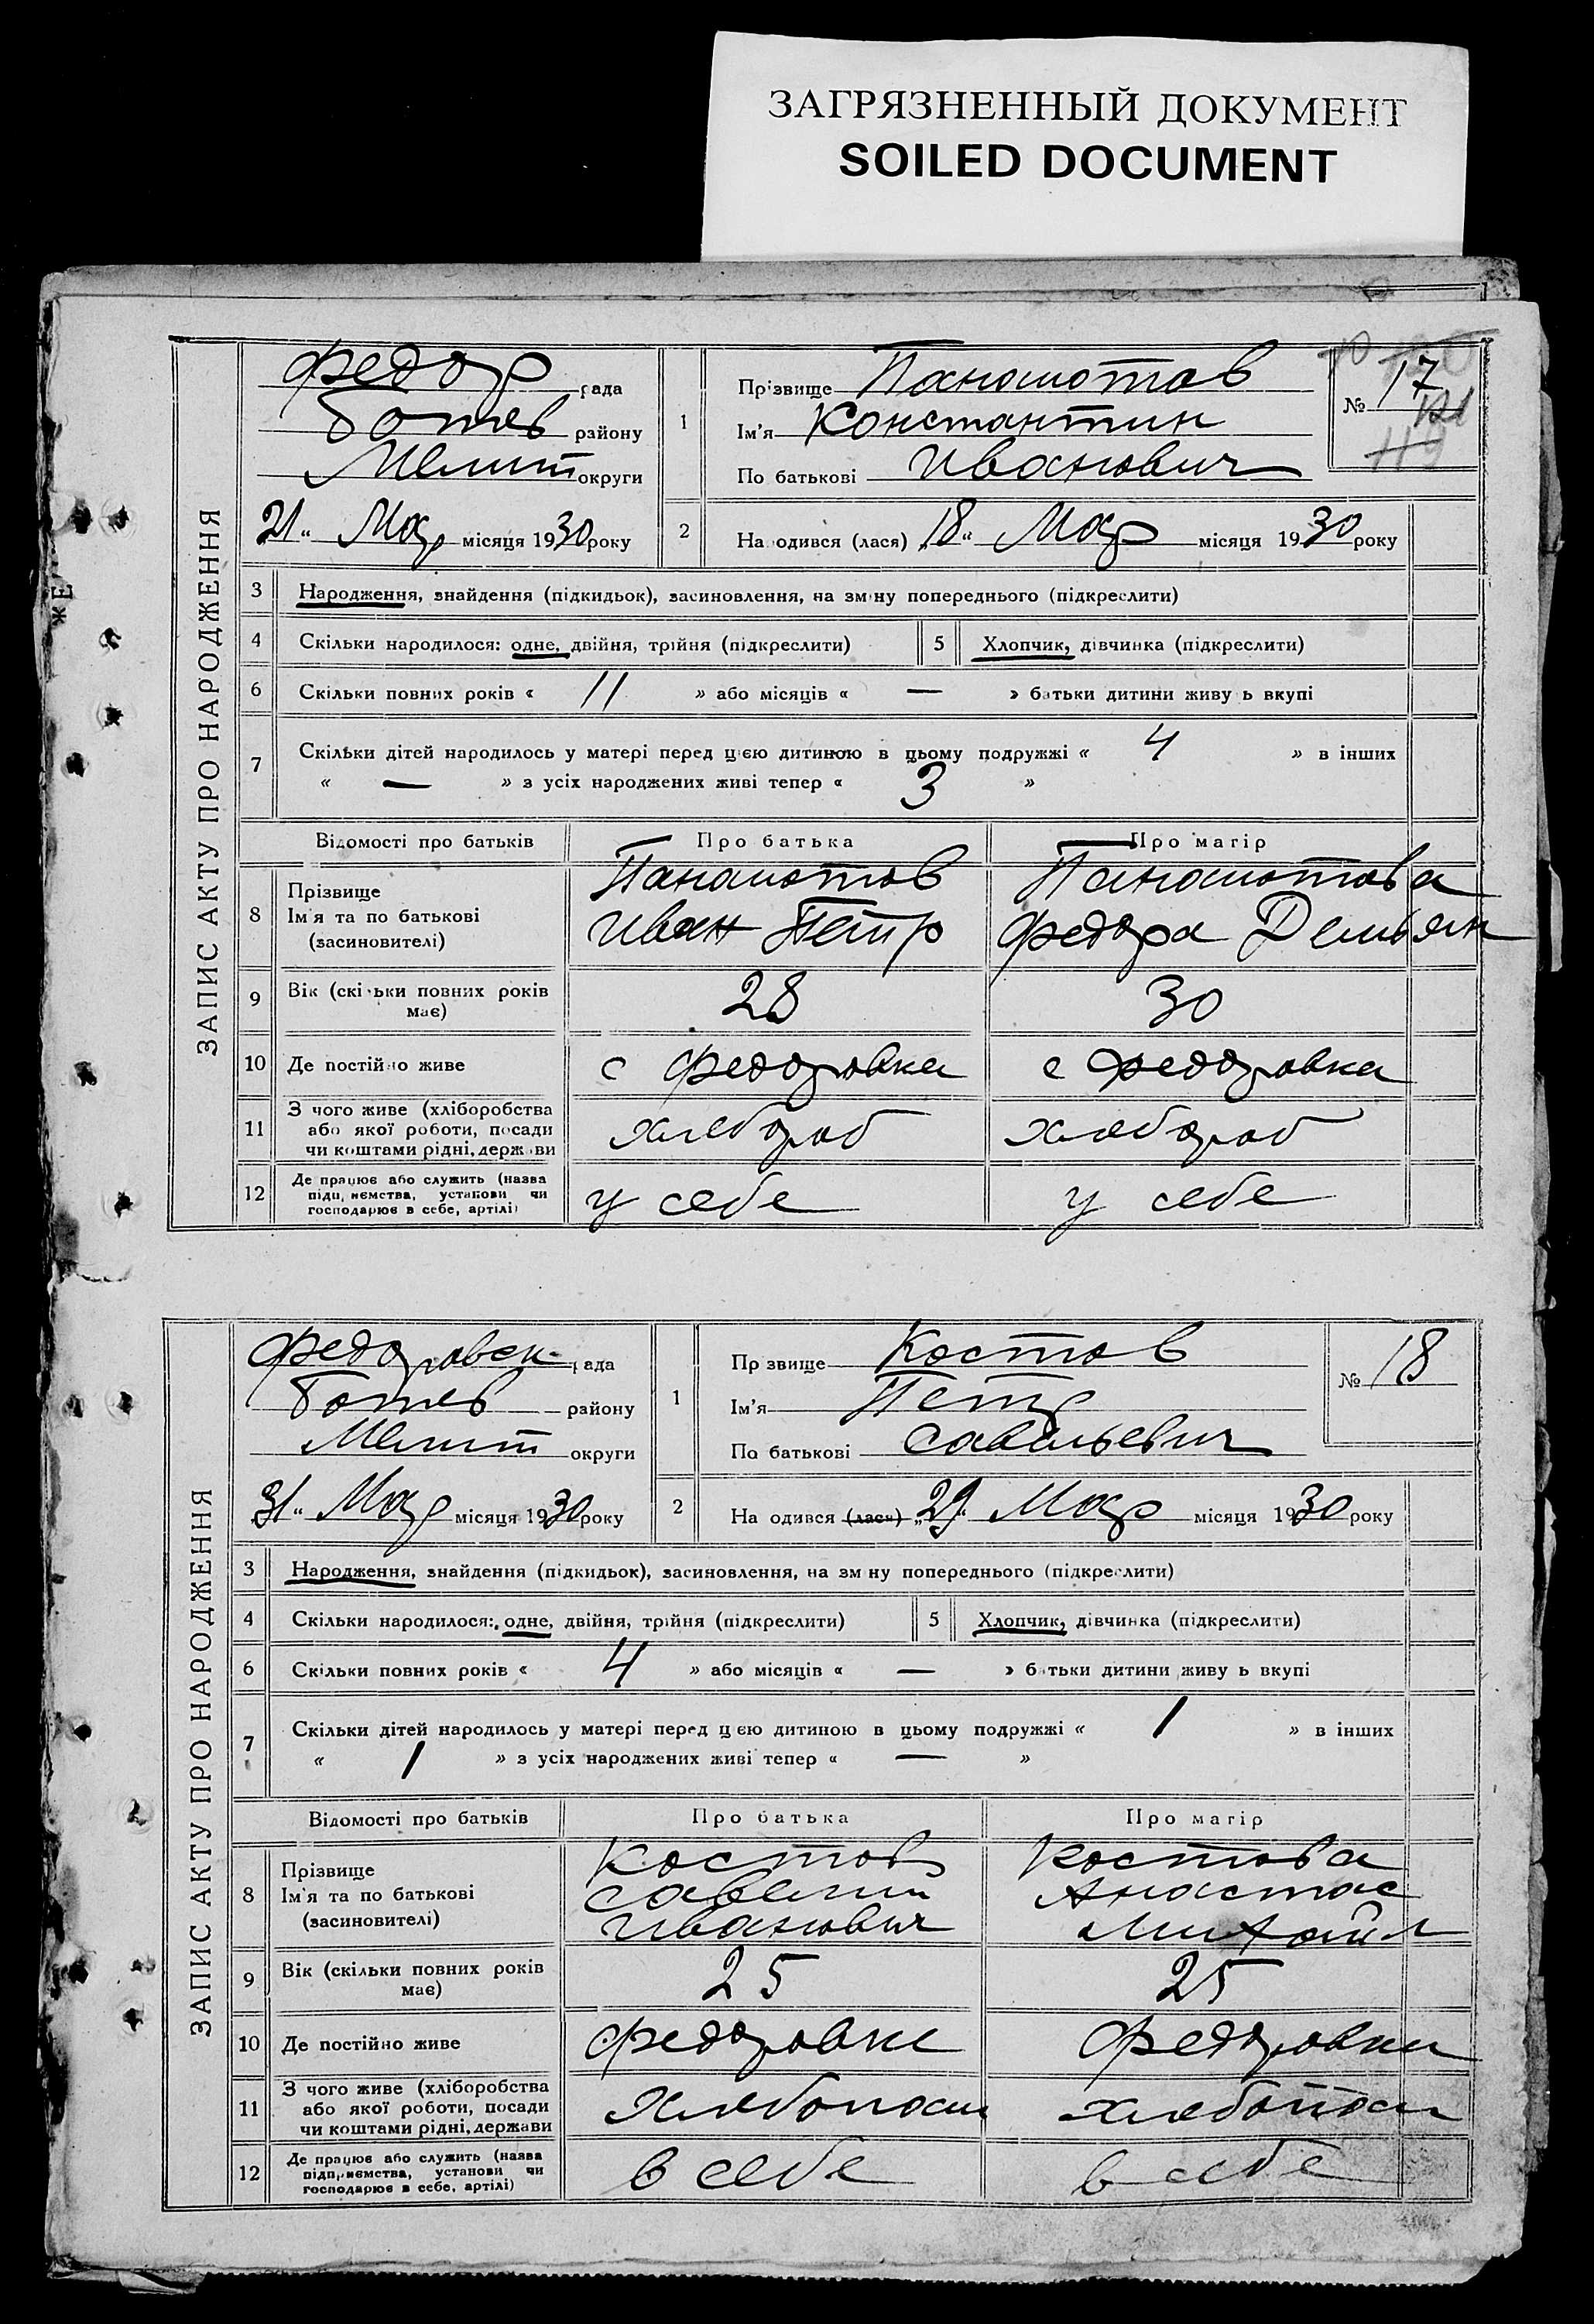 ЗАГРЯЗНЕННЫЙ ДОКУМЕНТ
SOILED DOCUMENT
ЗАПИС АКТУ ПРО НАРОДЖЕННЯ
Федор рада
Ботев району
Мелит округи
21 " Мар місяця 1930 року
1
Прізвище Панаиотов
Ім'я Константин
По батькові Иванович
№ 17
119
2
На одився (лася) „18" Мар місяця 1930 року
3 Народження, знайдення (підкидьок), засиновлення, на зміну попереднього (підкреслити)
4 Скільки народилося: одне, двійня, трійня (підкреслити) 5 Хлопчик, дівчинка (підкреслити)
6 Скільки повних років « 11 » або місяців « — » батьки дитини живу ь вкупі
7 Скільки дітей народилось у матері перед цією дитиною в цьому подружжі « 4 » в інших
« — » з усіх народжених живі тепер « 3 »
Відомості про батьків Про батька Про матір
8 Прізвище Ім'я та по батькові (засиновителі)
Панаиотов Иван Петр
Панаиотова Федора Демьян
9 Вік (скільки повних років має) 28 30
10 Де постійно живе с Федоровка с Федоровка
11 З чого живе (хліборобства або якої роботи, посади чи коштами рідні, держави
хлебороб хлебороб
12 Де працює або служить (назва підприємства, установи чи господарює в себе, артілі)
у себе у себе
ЗАПИС АКТУ ПРО НАРОДЖЕННЯ
Федоровск рада
Ботев району
Мелит округи
31 " Мар місяця 1930 року
1
Пр звище Костов
Ім'я Петр
По батькові Савельевич
№ 18
2
На одився (лася) „29" Мар місяця 1930 року
3 Народження, знайдення (підкидьок), засиновлення, на зм ну попереднього (підкреслити)
4 Скільки народилося: одне, двійня, трійня (підкреслити) 5 Хлопчик, дівчинка (підкреслити)
6 Скільки повних років « 4 » або місяців « — » б тьки дитини живу ь вкупі
7 Скільки дітей народилось у матері перед ц єю дитиною в цьому подружжі « 1 » в інших
« 1 » з усіх народжених живі тепер « — »
Відомості про батьків Про батька Про матір
8 Прізвище Ім'я та по батькові (засиновителі)
Костов Савелий Иванович
Костова Анастас Михайл
9 Вік (скільки повних років має) 25 25
10 Де постійно живе Федоровке Федоровки
11 З чого живе (хліборобства або якої роботи, посади чи коштами рідні, держави
хлебопаш хлебопаш
12 Де працює або служить (назва підприємства, установи чи господарює в себе, артілі)
в себе в себе